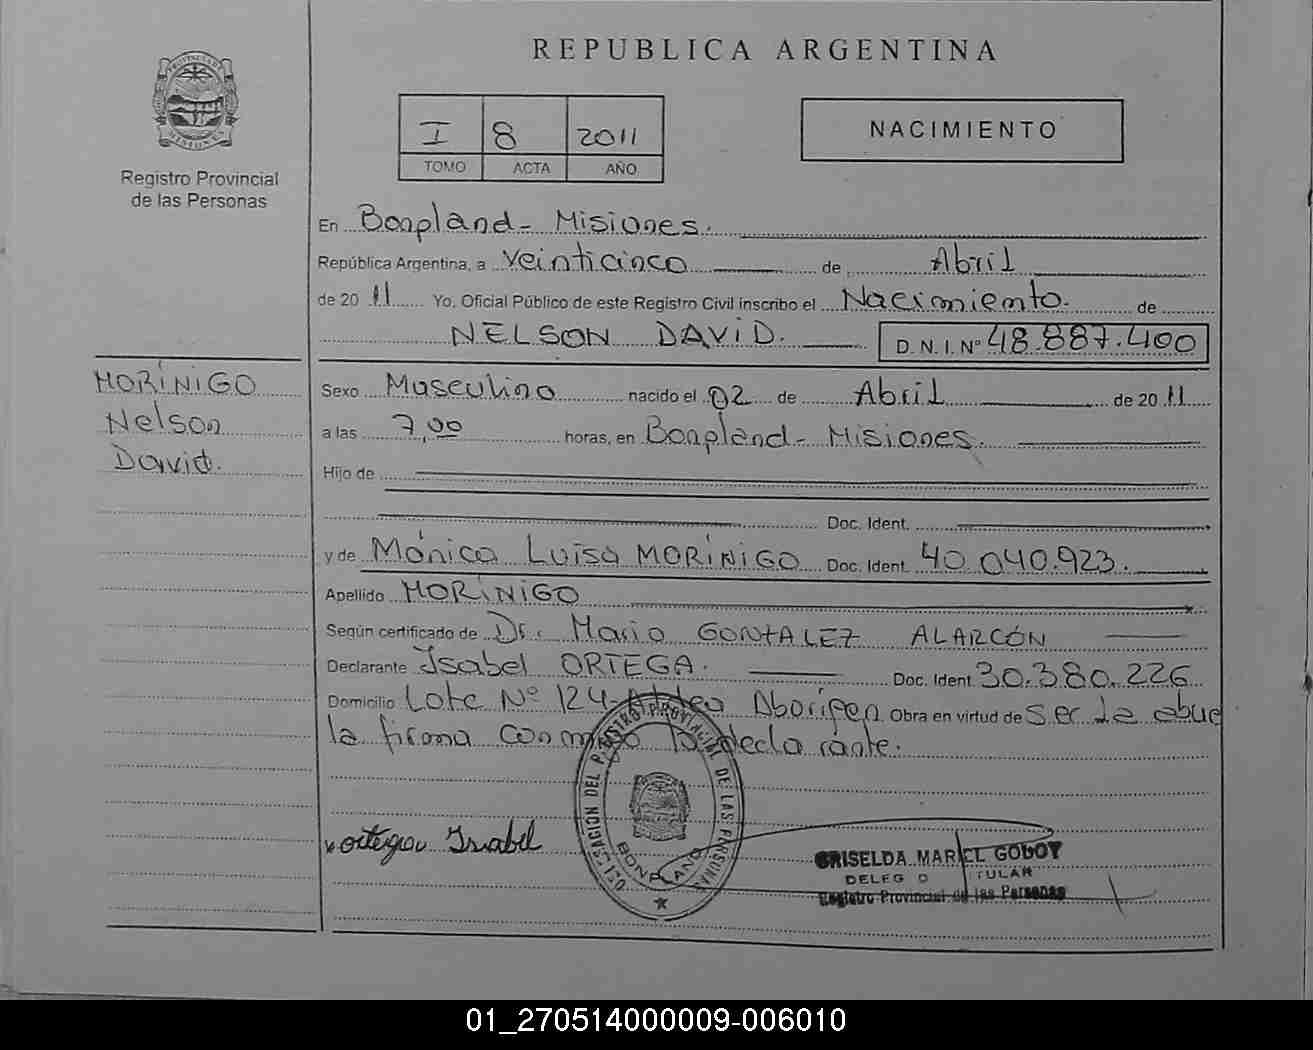 REPUBLICA ARGENTINA
I 8 2011
TOMO ACTA AÑO
NACIMIENTO
Registro Provincial
de las Personas
En Bonpland - Misiones.
República Argentina, a Veinticinco de Abril
de 2011 Yo, Oficial Público de este Registro Civil inscribo el Nacimiento. de
NELSON DAVID. D.N.I. Nº 48.887.400
MORÍNIGO
Nelson
David.
Sexo Masculino nacido el 02 de Abril de 2011
a las 7,00 horas, en Bonpland - Misiones.
Hijo de
Doc. Ident.
y de Mónica Luisa MORÍNIGO Doc. Ident. 40.040.923.
Apellido MORÍNIGO
Según certificado de Dr. Mario GONZALEZ ALARCÓN
Declarante Isabel ORTEGA. Doc. Ident. 30.380.226
Domicilio Lote Nº 124 - Aldea Aborigen Obra en virtud de ser la abue
la firma conmigo la declarante.
Ortega Isabel
REGISTRO PROVINCIAL DE LAS PERSONAS
BONPLAND
GRISELDA MARIEL GODOY
DELEG D TITULAR
Registro Provincial de las Personas
01_270514000009-006010